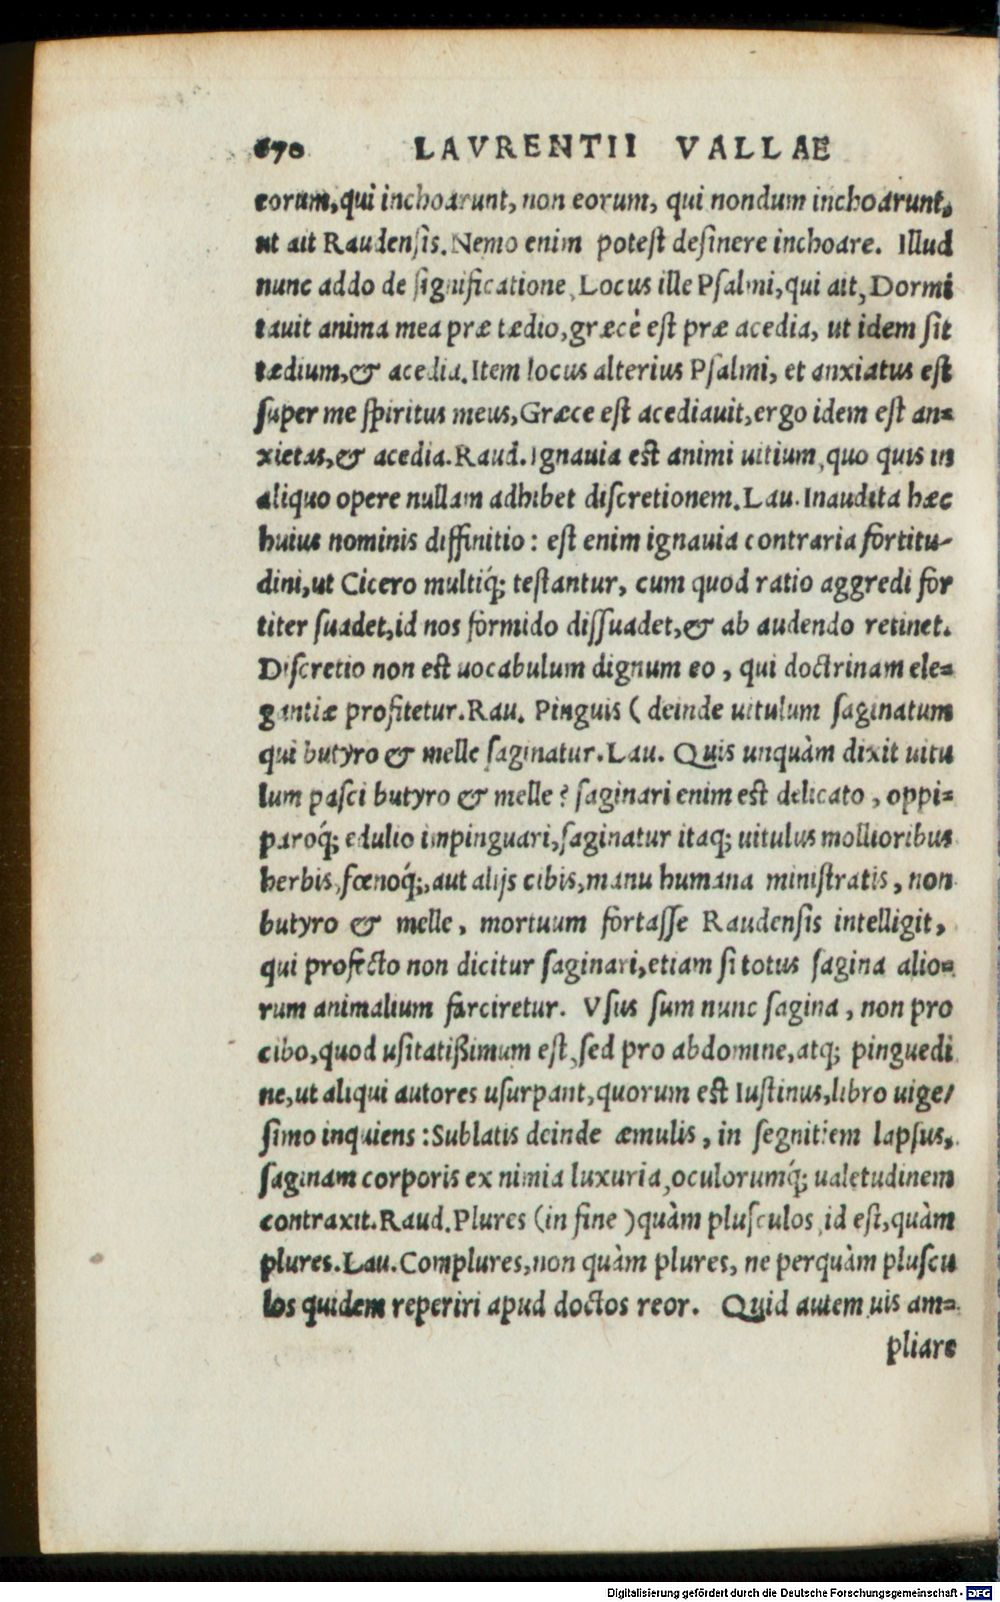 670 LAVRENTII VALLAE
eorum, qui inchoarunt, non eorum, qui nondum inchoarunt,
ut ait Raudensis. Nemo enim potest desinere inchoare. Illud
nunc addo de significatione, Locus ille Psalmi, qui ait, Dormi
tauit anima mea præ tædio, græcè est præ acedia, ut idem sit
tædium, & acedia. Item locus alterius Psalmi, et anxiatus est
super me spiritus meus, Græce est acediauit, ergo idem est an=
xietas, & acedia. Raud. Ignauia est animi uitium, quo quis in
aliquo opere nullam adhibet discretionem. Lau. Inaudita hæc
huius nominis diffinitio: est enim ignauia contraria fortitu-
dini, ut Cicero multiq́; testantur, cum quod ratio aggredi for
titer suadet, id nos formido dissuadet, & ab audendo retinet.
Discretio non est uocabulum dignum eo, qui doctrinam ele=
gantiæ profitetur. Rau. Pinguis ( deinde uitulum saginatum
qui butyro & melle saginatur. Lau. Quis unquàm dixit uitu
lum pasci butyro & melle? saginari enim est delicato, oppi=
paroq́; edulio impinguari, saginatur itaq; uitulus mollioribus
herbis, fœnoq́;, aut alijs cibis, manu humana ministratis, non
butyro & melle, mortuum fortasse Raudensis intelligit,
qui profecto non dicitur saginari, etiam si totus sagina alio=
rum animalium farciretur. Vsus sum nunc sagina, non pro
cibo, quod usitatißimum est, sed pro abdomine, atq; pinguedi
ne, ut aliqui autores usurpant, quorum est Iustinus, libro uige/
simo inquiens: Sublatis deinde æmulis, in segnitiem lapsus,
saginam corporis ex nimia luxuria, oculorumq́; ualetudinem
contraxit. Raud. Plures (in fine) quàm plusculos, id est, quàm
plures. Lau. Complures, non quàm plures, ne perquàm pluscu
los quidem reperiri apud doctos reor. Quid autem uis am=
pliare
Digitalisierung gefördert durch die Deutsche Forschungsgemeinschaft - DFG